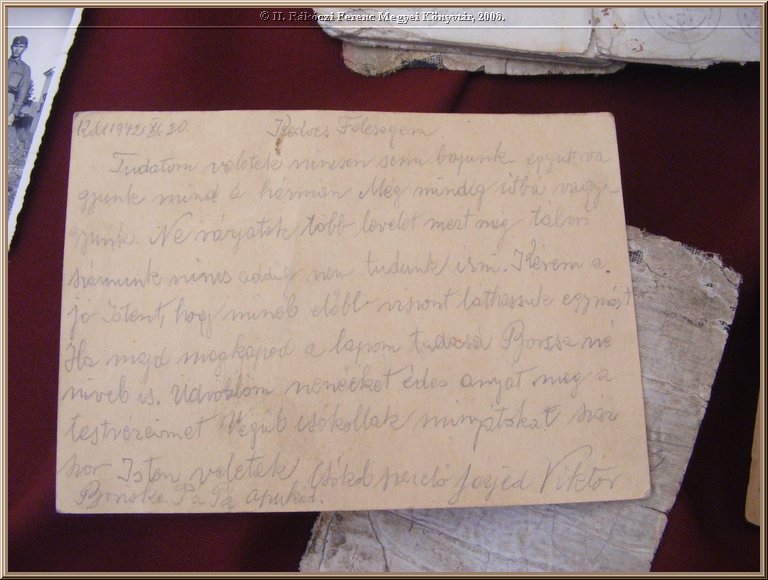 © II. Rákóczi Ferenc Megyei Könyvtár, 2008.
Kelt 1942 XI 20. Kedves Feleségem
Tudatom veletek nincsen semi bajunk együt va
gyunk mind a hárman Még mindig utba vagyu
gyunk. Ne várjatok több levelet mert még tábori
számunk nincs adig nem tudunk irni. Kérem a
jó Istent, hogy mineb előbb viszont láthassuk egymást
Ha majd megkapod a lapom tudasd Boriska né
nivel is. Udvözlöm nenéeket édes anyát meg a
testvéreimet Végüb csókollak minyátokat száz
szor Isten veletek Csókol szerető férjed Viktór
Boriska Pá Pá apukád.